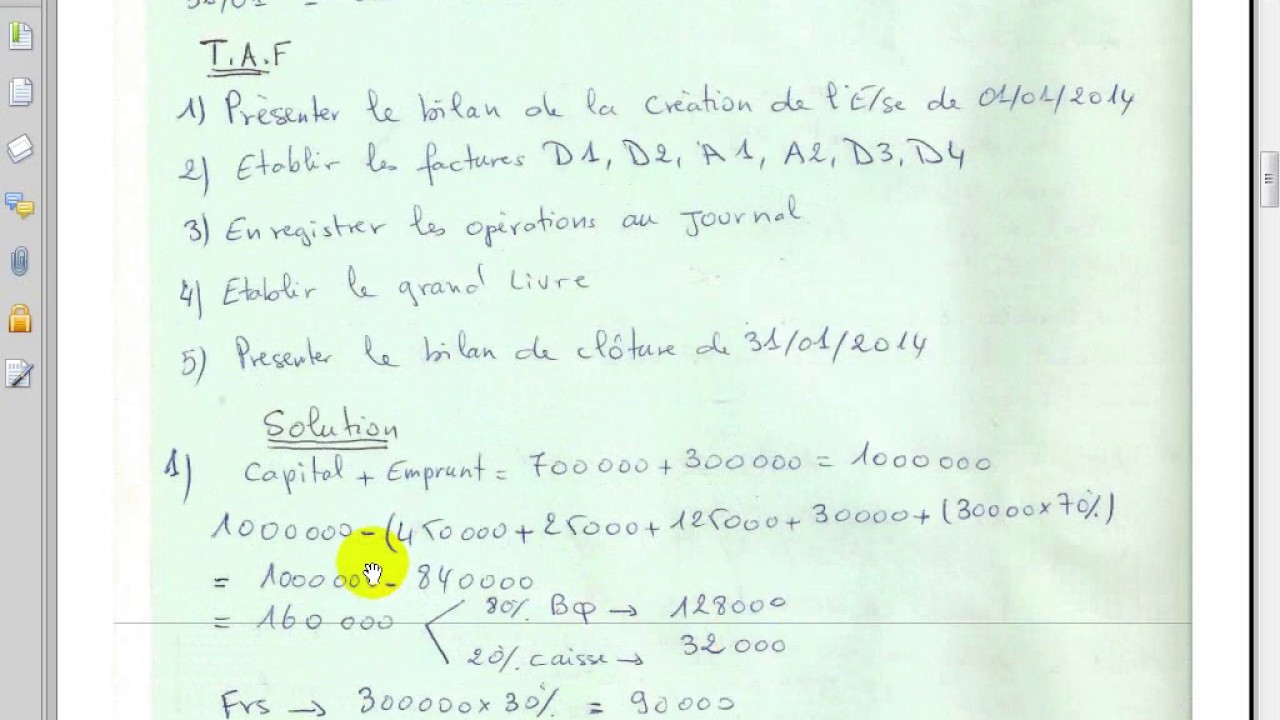 T.A.F
1) Présenter le bilan de la création de l'E/se de 01/01/2014
2) Etablir les factures D1, D2, A1, A2, D3, D4
3) Enregistrer les opérations au Journal
4) Etablir le grand Livre
5) Presenter le bilan de clôture de 31/01/2014
Solution
1) Capital + Emprunt = 700 000 + 300 000 = 1000 000
1000000 - (450000 + 25000 + 125000 + 30000 + (300000 x 70%)
= 1000 000 - 840000
= 160 000
80% Bφ → 128000
20% caisse → 32 000
Frs → 300000 x 30% = 90000